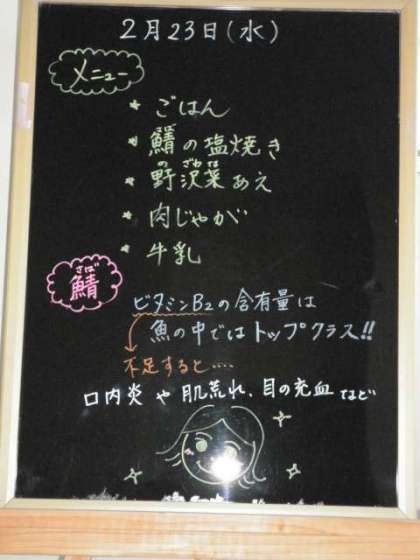 2月23日(水)
メニュー
* ごはん
* 鯖の塩焼き
* 野沢菜あえ
のざわな
* 肉じゃが
* 牛乳
さば
鯖
ビタミンB2の含有量は
魚の中ではトップクラス!!
不足すると‥‥
口内炎や肌荒れ、目の充血などど